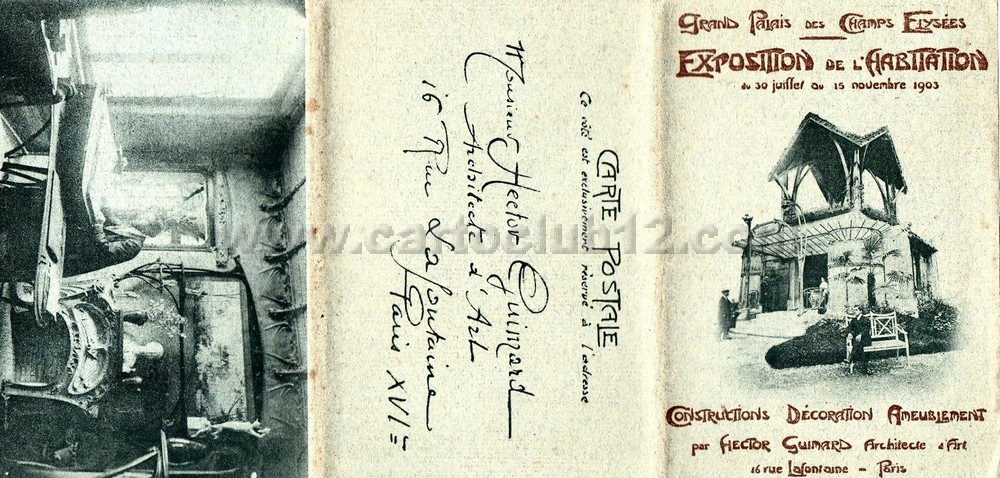 Monsieur Hector Guimard
Architecte d'Art
16 Rue Lafontaine
Paris XVIe
CARTE POSTALE
Ce côté est exclusivement réservé à l'adresse
GRAND PALAIS DES CHAMPS ELYSÉES
EXPOSITION DE L'HABITATION
du 30 juillet au 15 novembre 1903
CONSTRUCTIONS DÉCORATION AMEUBLEMENT
par HECTOR GUIMARD Architecte d'Art
16 rue Lafontaine – Paris
www.cartoclub12.co